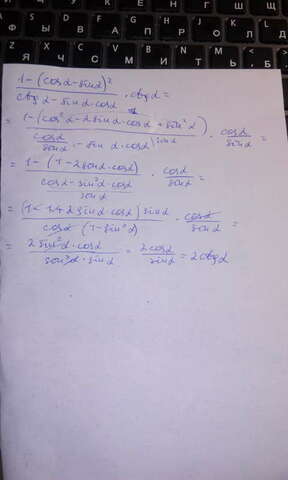 1-(cosα-sinα)²
/ ctgα-sinα·cosα · ctgα =
= 1-(cos²α-2sinα·cosα+sin²α)
/ cosα/sinα - sinα·cosα · cosα/sinα =
= 1-(1-2sinα·cosα)
/ (cosα-sin²α·cosα)/sinα · cosα/sinα =
= (1-1+2sinα cosα) sinα
/ cosα (1-sin²α) · cosα/sinα =
= 2sin²α·cosα
/ sin²α·sinα = 2cosα/sinα = 2ctgα